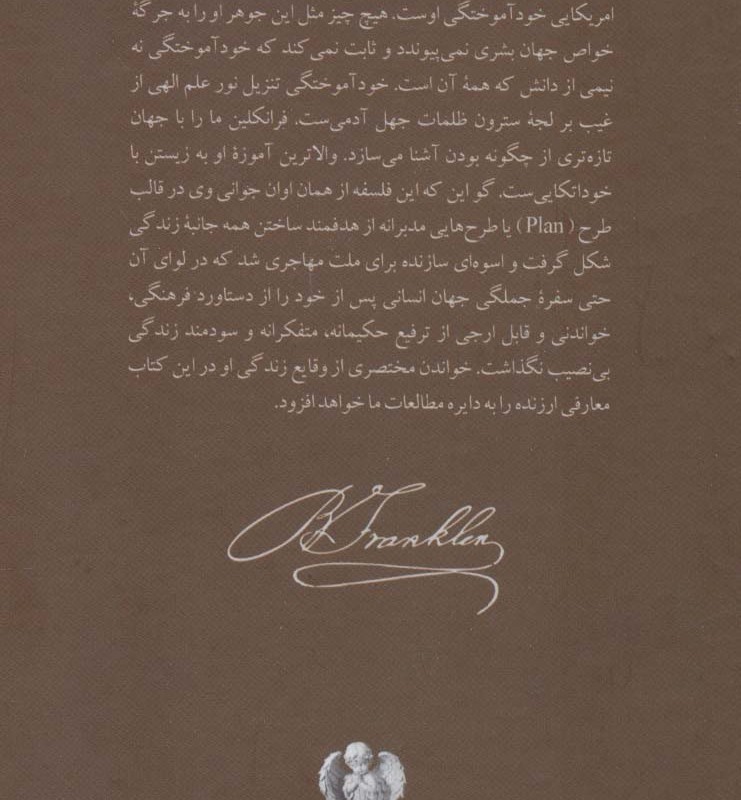 امریکایی خودآموختگی اوست. هیچ چیز مثل این جوهر او را به جرگهٔ
خواص جهان بشری نمی‌پیوندد و ثابت نمی‌کند که خودآموختگی نه
نیمی از دانش که همهٔ آن است. خودآموختگی تنزیل نور علم الهی از
غیب بر لجهٔ سترون ظلمات جهل آدمی‌ست. فرانکلین ما را با جهان
تازه‌تری از چگونه بودن آشنا می‌سازد. والاترین آموزهٔ او به زیستن با
خوداتکایی‌ست. گو این که این فلسفه از همان اوان جوانی وی در قالب
طرح (Plan) یا طرح‌هایی مدبرانه از هدفمند ساختن همه جانبهٔ زندگی
شکل گرفت و اسوه‌ای سازنده برای ملت مهاجری شد که در لوای آن
حتی سفرهٔ جملگی جهان انسانی پس از خود را از دستاورد فرهنگی،
خواندنی و قابل ارجی از ترفیع حکیمانه، متفکرانه و سودمند زندگی
بی‌نصیب نگذاشت. خواندن مختصری از وقایع زندگی او در این کتاب
معارفی ارزنده را به دایره مطالعات ما خواهد افزود.
B Franklin